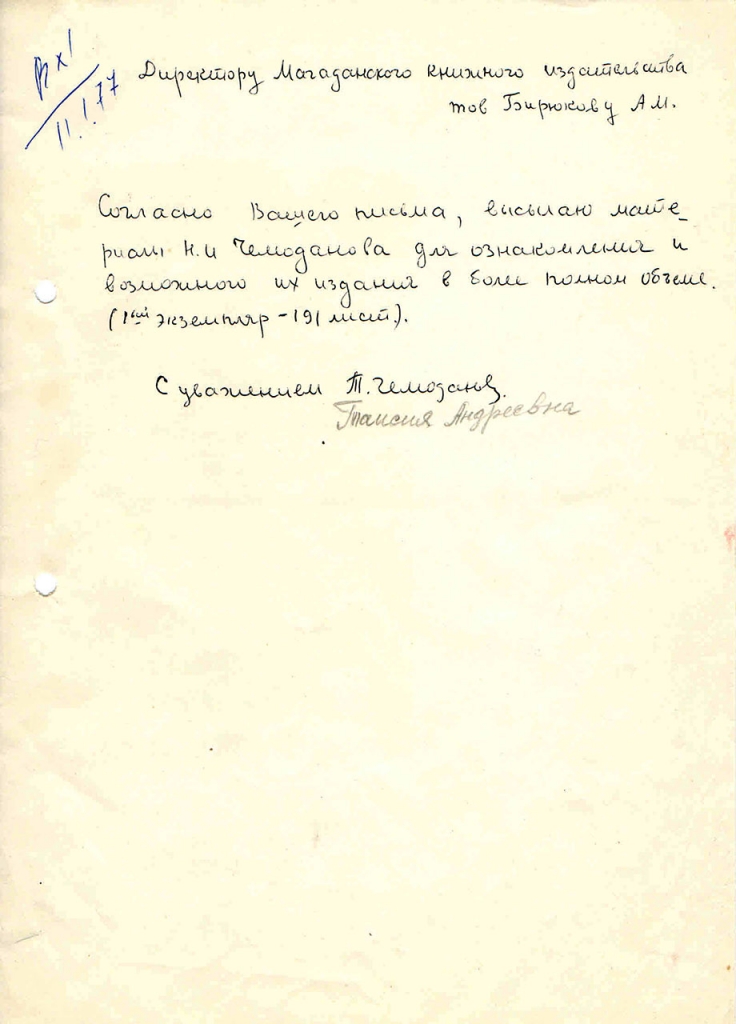 Вх 1
11.1.77
Директору Магаданского книжного издательства
тов Бирюкову А.М.
Согласно Вашего письма, высылаю мате-
риалы Н.И Чемоданова для ознакомления и
возможного их издания в более полном объеме.
(1ый экземпляр - 191 лист.).
С уважением Т. Чемоданов.
Таисия Андреевна